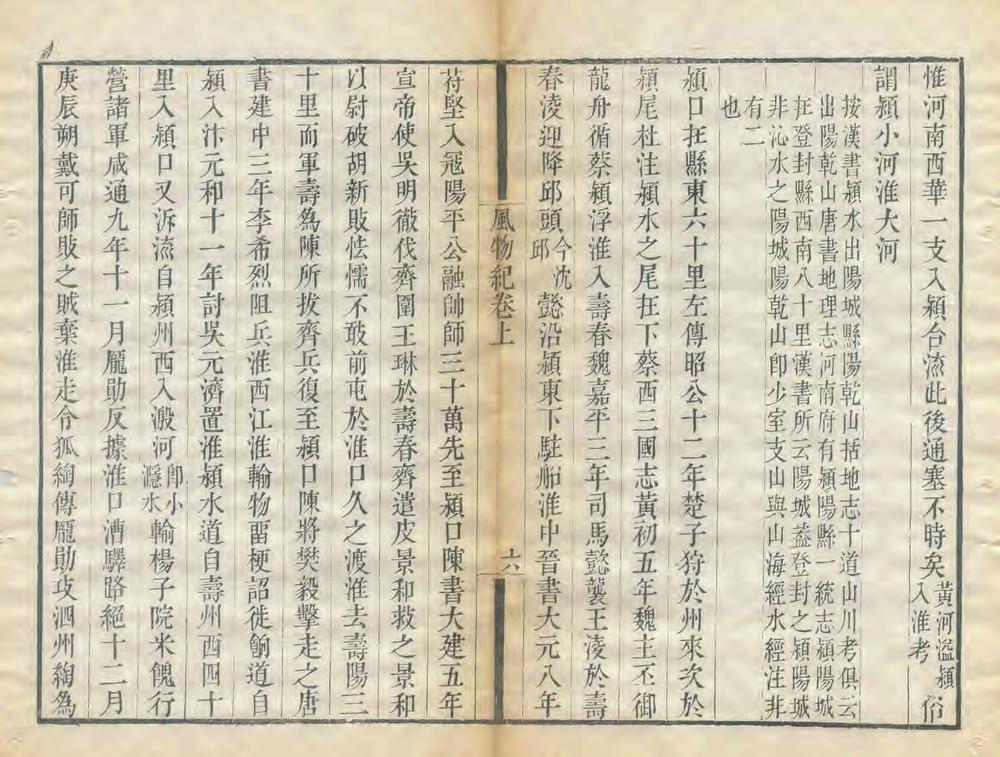 惟河南西華一支入潁台流此後通塞不時矣黃河溢潁入淮考俗
謂潁小河淮大河
按漢書潁水出陽城縣陽乾山括地志十道山川考俱云
出陽乾山唐書地理志河南府有潁陽縣一統志潁陽城
在登封縣西南八十里漢書所云陽城葢登封之潁陽城
非沁水之陽城陽乾山卽少室支山與山海經水經注非
有二
也
潁口在縣東六十里左傳昭公十二年楚子狩於州來次於
潁尾杜注潁水之尾在下蔡西三國志黃初五年魏主丕御
龍舟循蔡潁浮淮入壽春魏嘉平三年司馬懿襲王淩於壽
春淩迎降邱頭今沈邱懿沿潁東下駐船淮中晉書大元八年
風物紀卷上
六
苻堅入寇陽平公融帥師三十萬先至潁口陳書大建五年
宣帝使吳明徹伐齊圍王琳於壽春齊遣皮景和救之景和
以尉破胡新敗怯懦不敢前屯於淮口久之渡淮去壽陽三
十里而軍壽為陳所拔齊兵復至潁口陳將樊毅擊走之唐
書建中三年李希烈阻兵淮西江淮輸物畱梗詔徙餉道自
潁入汴元和十一年討吳元濟置淮潁水道自壽州西四十
里入潁口又泝流自潁州西入溵河卽小㶏水輸楊子院米餽行
營諸軍咸通九年十一月龐勛反據淮口漕驛路絕十二月
庚辰朔戴可師敗之賊棄淮走令狐綯傳龐勛攻泗州綯為